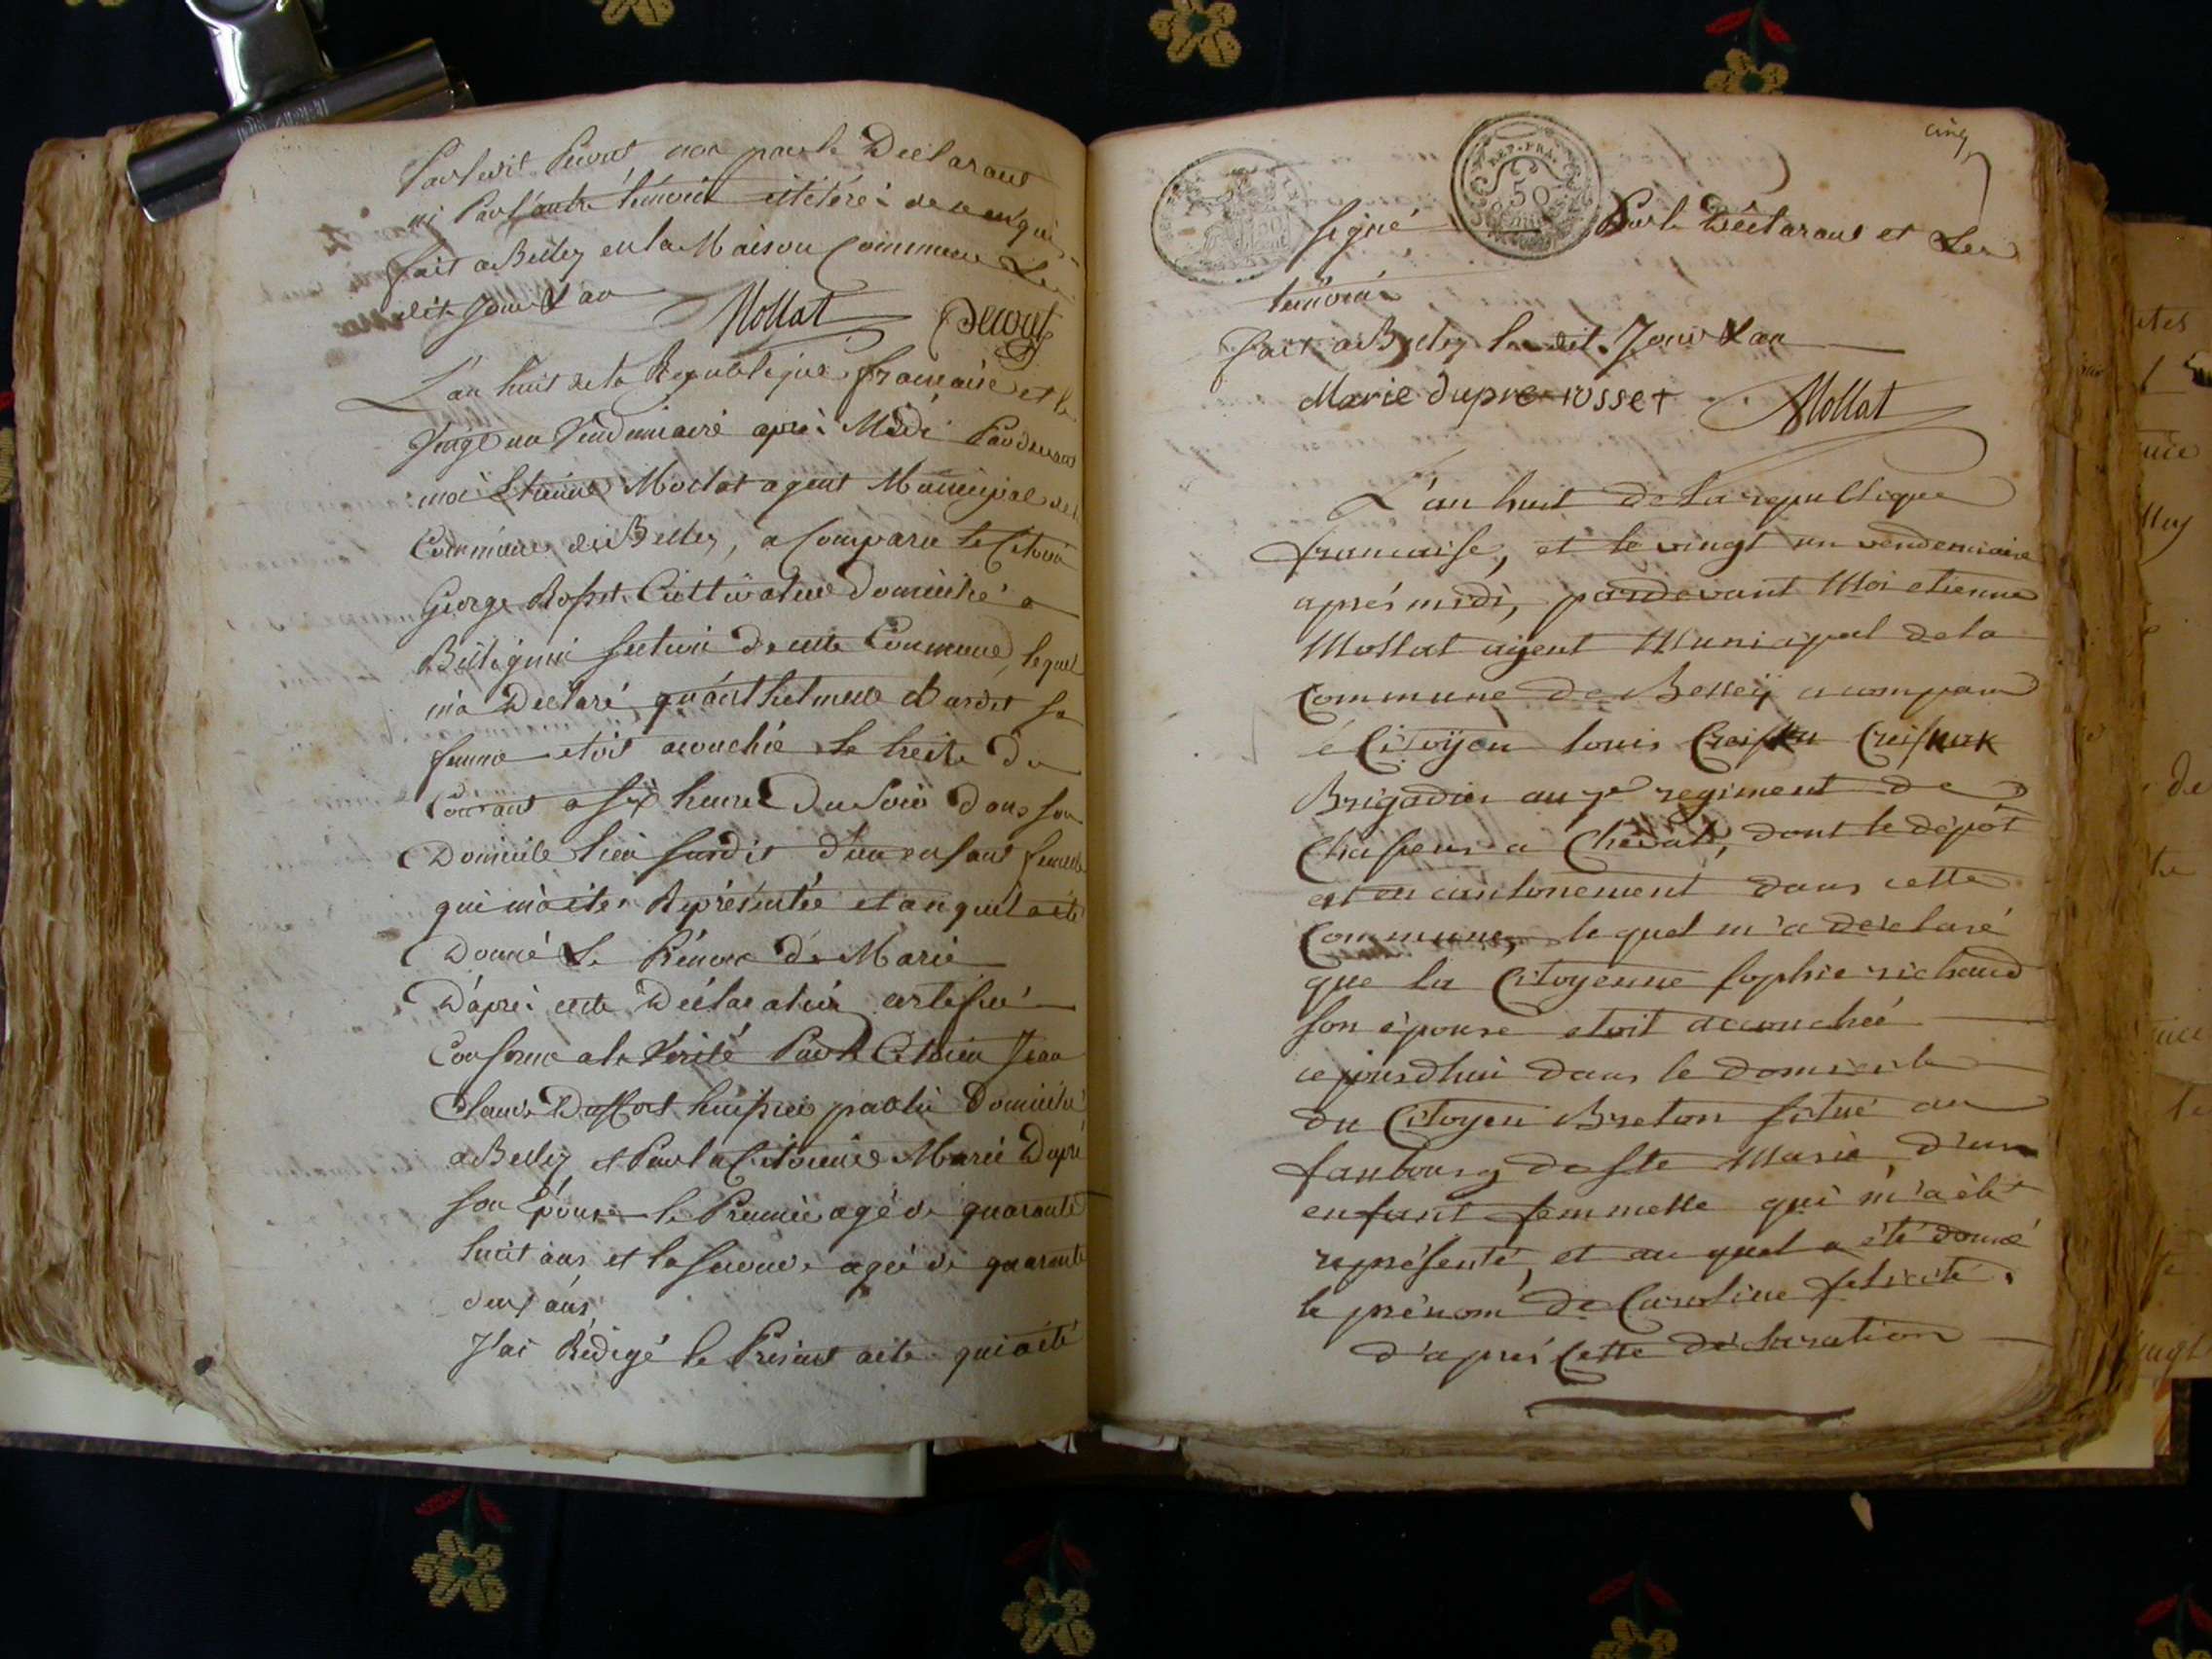 Par ledit Decout non par le Déclarant
ni Par l'autre témoin
fait a Belley en la Maison Commune Les
dit Jour & an
Mollat Decout
L'an huit de la Republique francaise et le
Vingt un Vendemiaire après Midi Pardevant
moi Etienne Mollat agent Municipal de la
Commune de Belley, a Comparu le Citoien
George Rosset Cultivateur Domicilié a
section de cette Commune, lequel
m'a Déclaré qu'anthelmette Bardet sa
femme etoit acouchée le treize du
Courant a six heures Du Soir dans son
Domicile lieu susdit d'un enfant femelle
qui m'a été Représentée et auquel a été
Donné Le Prénom de Marie
D'après cette Déclaration certifié
Conforme a la Vérité Par le Citoien Jean
Claude huissier public Domicilié
a Belley et Par la Citoienne Marie Dupré
son Epouse le Premier agé de quarante
huit ans et la Seconde agée de quarante
deux ans
J'ai Rédigé le Présent acte qui a été
cinq
REP. FRA.
50
signé Par le Déclarant et Les
témoins
fait a Belley les dit Jour & an
Marie dupre rosset Mollat
L'an huit de la republique
francaise, et le vingt un vendemiaire
aprés midi, pardevant Moi etienne
Mollat agent Municipal de la
Commune de Belleÿ a comparu
le Citoÿen louis
Brigadier au 7e regiment de
Chasseurs a Cheval, dont le dépôt
est en cantonement dans cette
Commune, lequel m'a déclaré
que la Citoyenne sophie richaud
son épouse etoit accouchée
cejourd'hui dans le domicile
du Citoyen Breton situé au
faubourg de Ste Marie, d'un
enfant femmelle qui m'a été
représenté, et au quel a été donné
le prénom de Caroline felicité.
d'aprés Cette déclaration